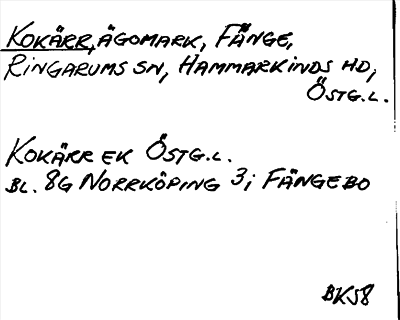 KOKÄRR, ÄGOMARK, FÄNGE,
RINGARUMS SN, HAMMARKINDS HD,
ÖSTG.L.
KOKÄRR EK ÖSTG.L.
BL. 8G NORRKÖPING 3i FÄNGEBO
BK58